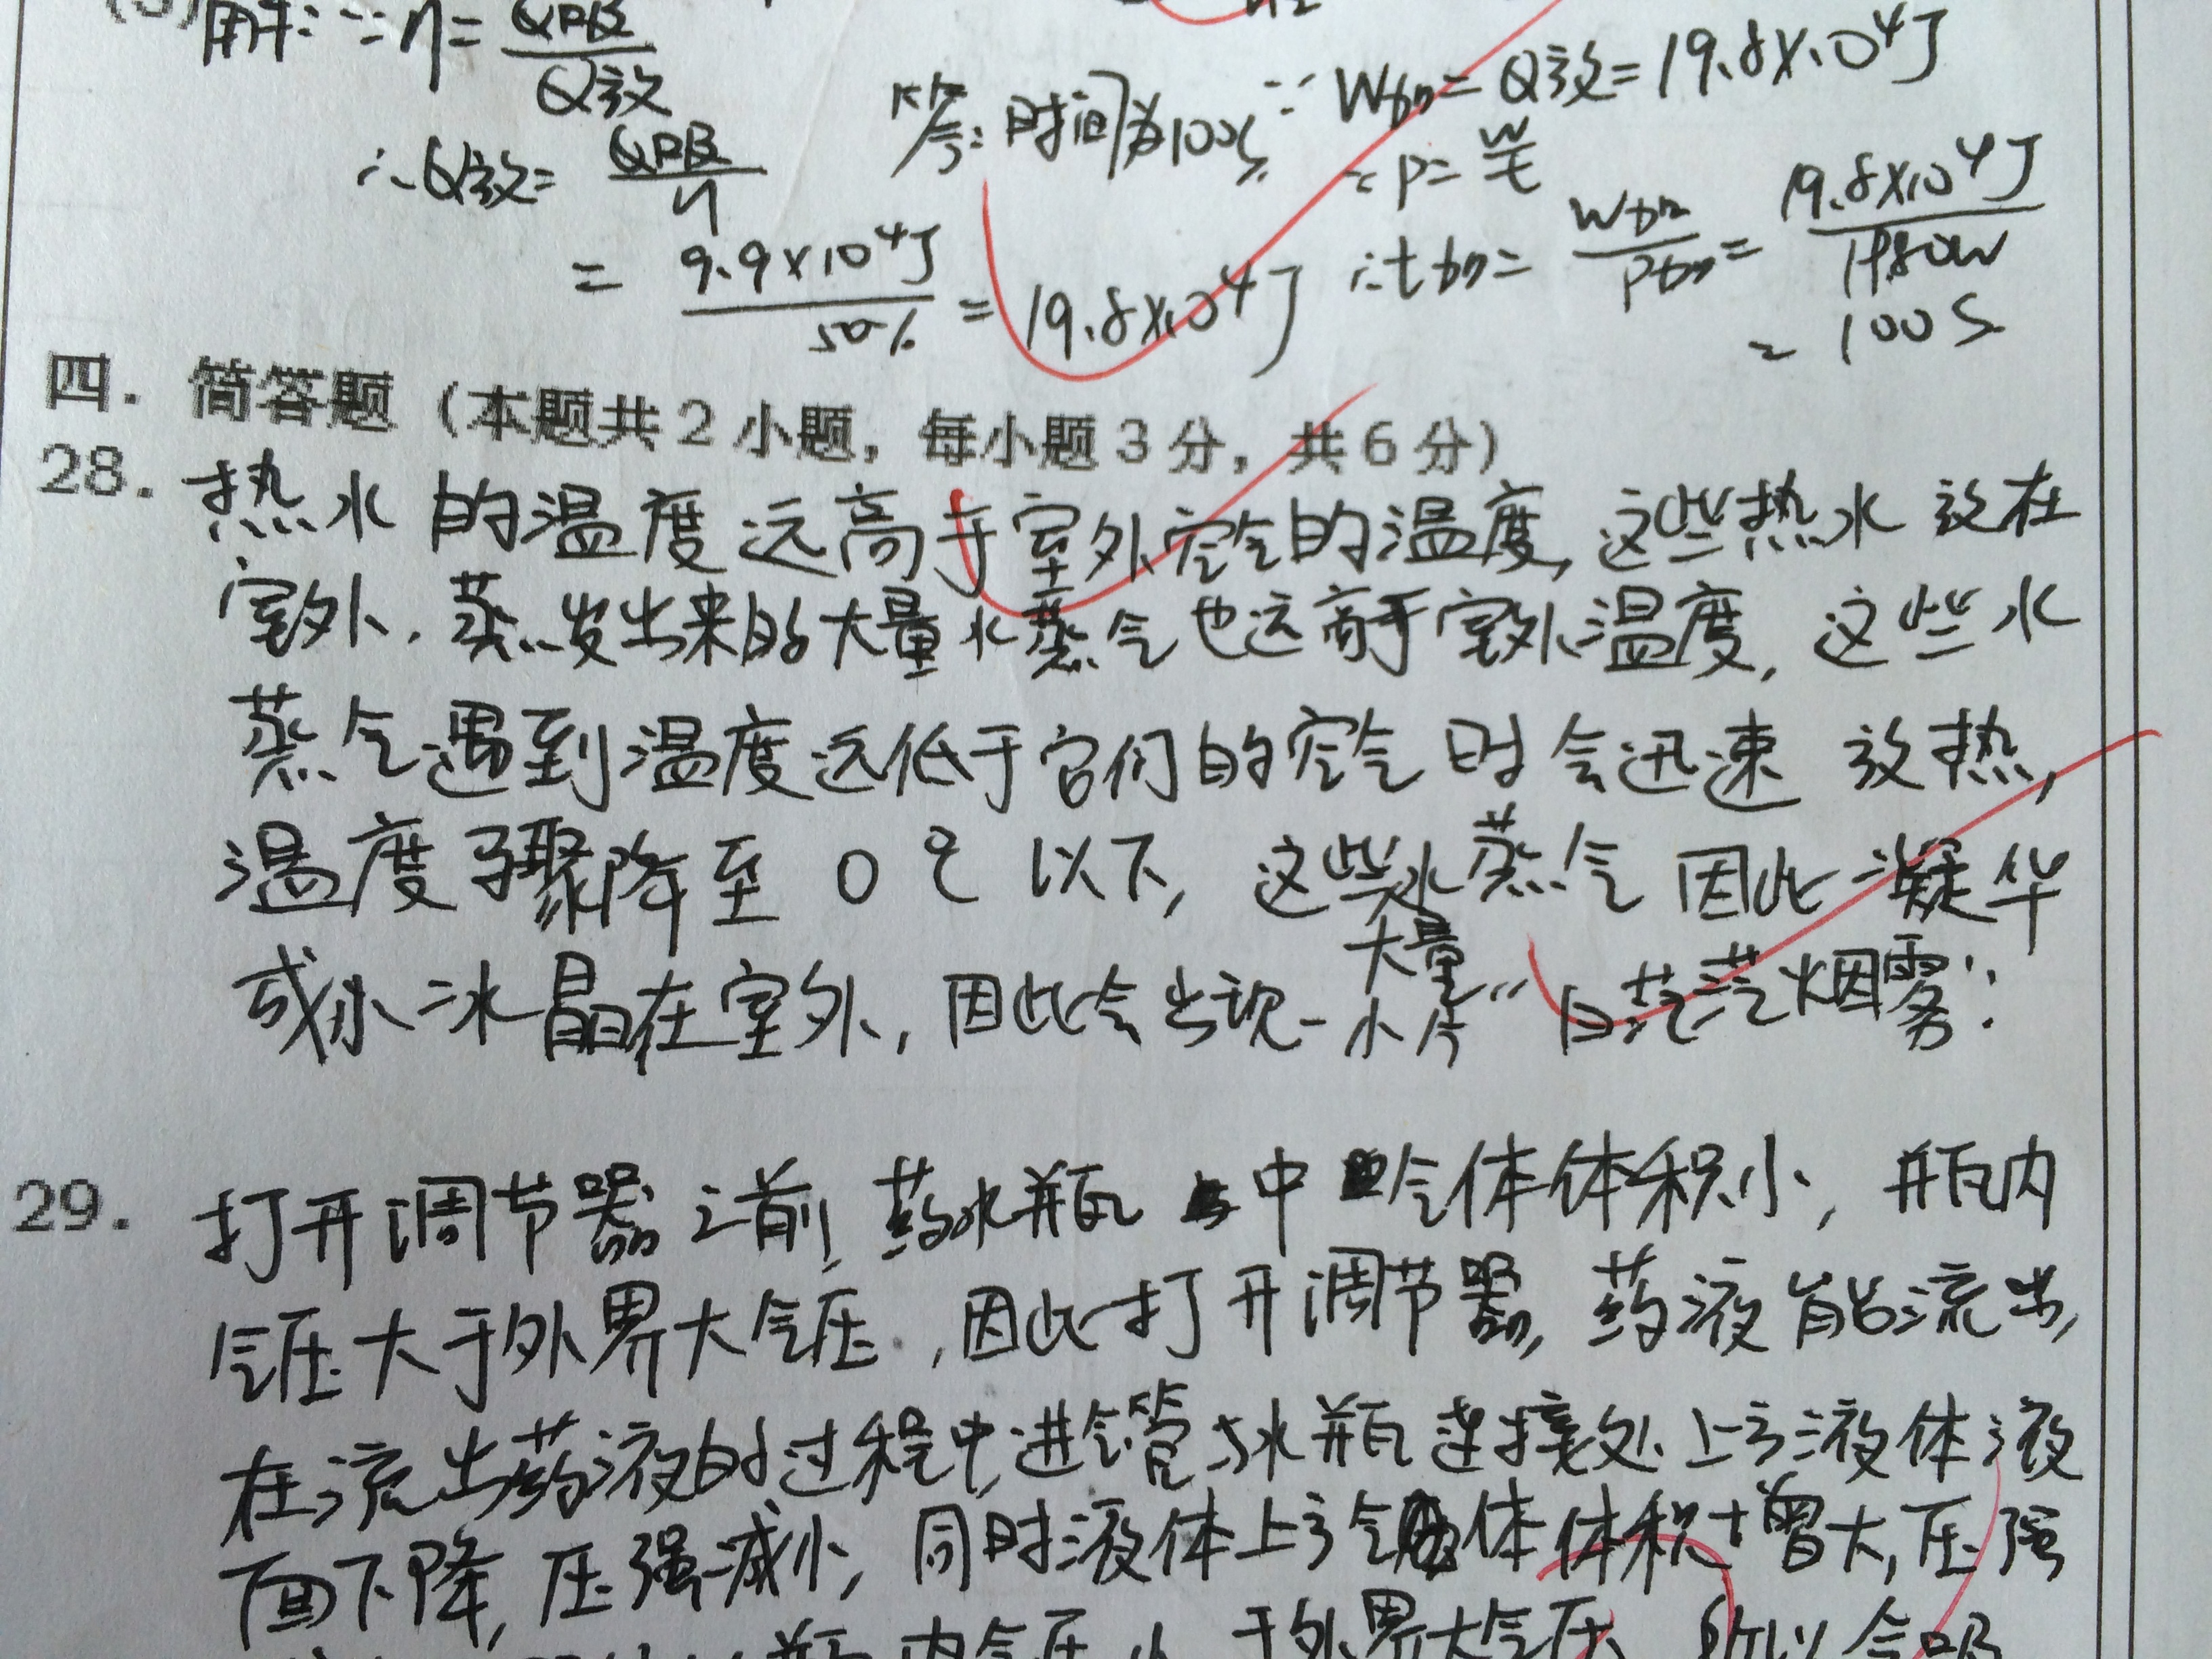 解:∵η=Q吸/Q放
∴Q放=Q吸/η
=9.9×10⁴J/50%=19.8×10⁴J
答:时间为100s
∵W加=Q放=19.8×10⁴J
∵P=W/t
∴t加=W加/P加=19.8×10⁴J/1980W
=100S
四. 简答题(本题共2小题,每小题3分,共6分)
28. 热水的温度远高于室外空气的温度,这些热水放在
室外.蒸发出来的大量水蒸气也远高于室外温度,这些水
蒸气遇到温度远低于它们的空气时会迅速放热,
温度骤降至0℃以下,这些水蒸气因此凝华
成小冰晶在室外,因此会出现一大量小片“白茫茫烟雾”.
29. 打开调节器之前,药水瓶中气体体积小,瓶内
气压大于外界大气压,因此打开调节器,药液能流出,
在流出药液的过程中,进气管与水瓶连接处上方液体液
面下降,压强减小,同时液体上方气体体积增大,压强
瓶内气压小于外界大气压,所以会吸